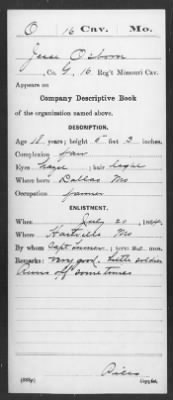 O | 16 Cav. | Mo.
Jesse Osborn
, Co. G, 16 Reg't Missouri Cav.
Appears on
Company Descriptive Book
of the organization named above.
DESCRIPTION.
Age 18 years; height 5 feet 2 inches.
Complexion fair
Eyes hazel ; hair
Where born Dallas Mo
Occupation farmer
ENLISTMENT.
When July 20, 1864.
Where Hartville Mo
By whom Capt ; term mos.
Remarks: Very good little soldier
Runs off some times
(383g)
Copyist.